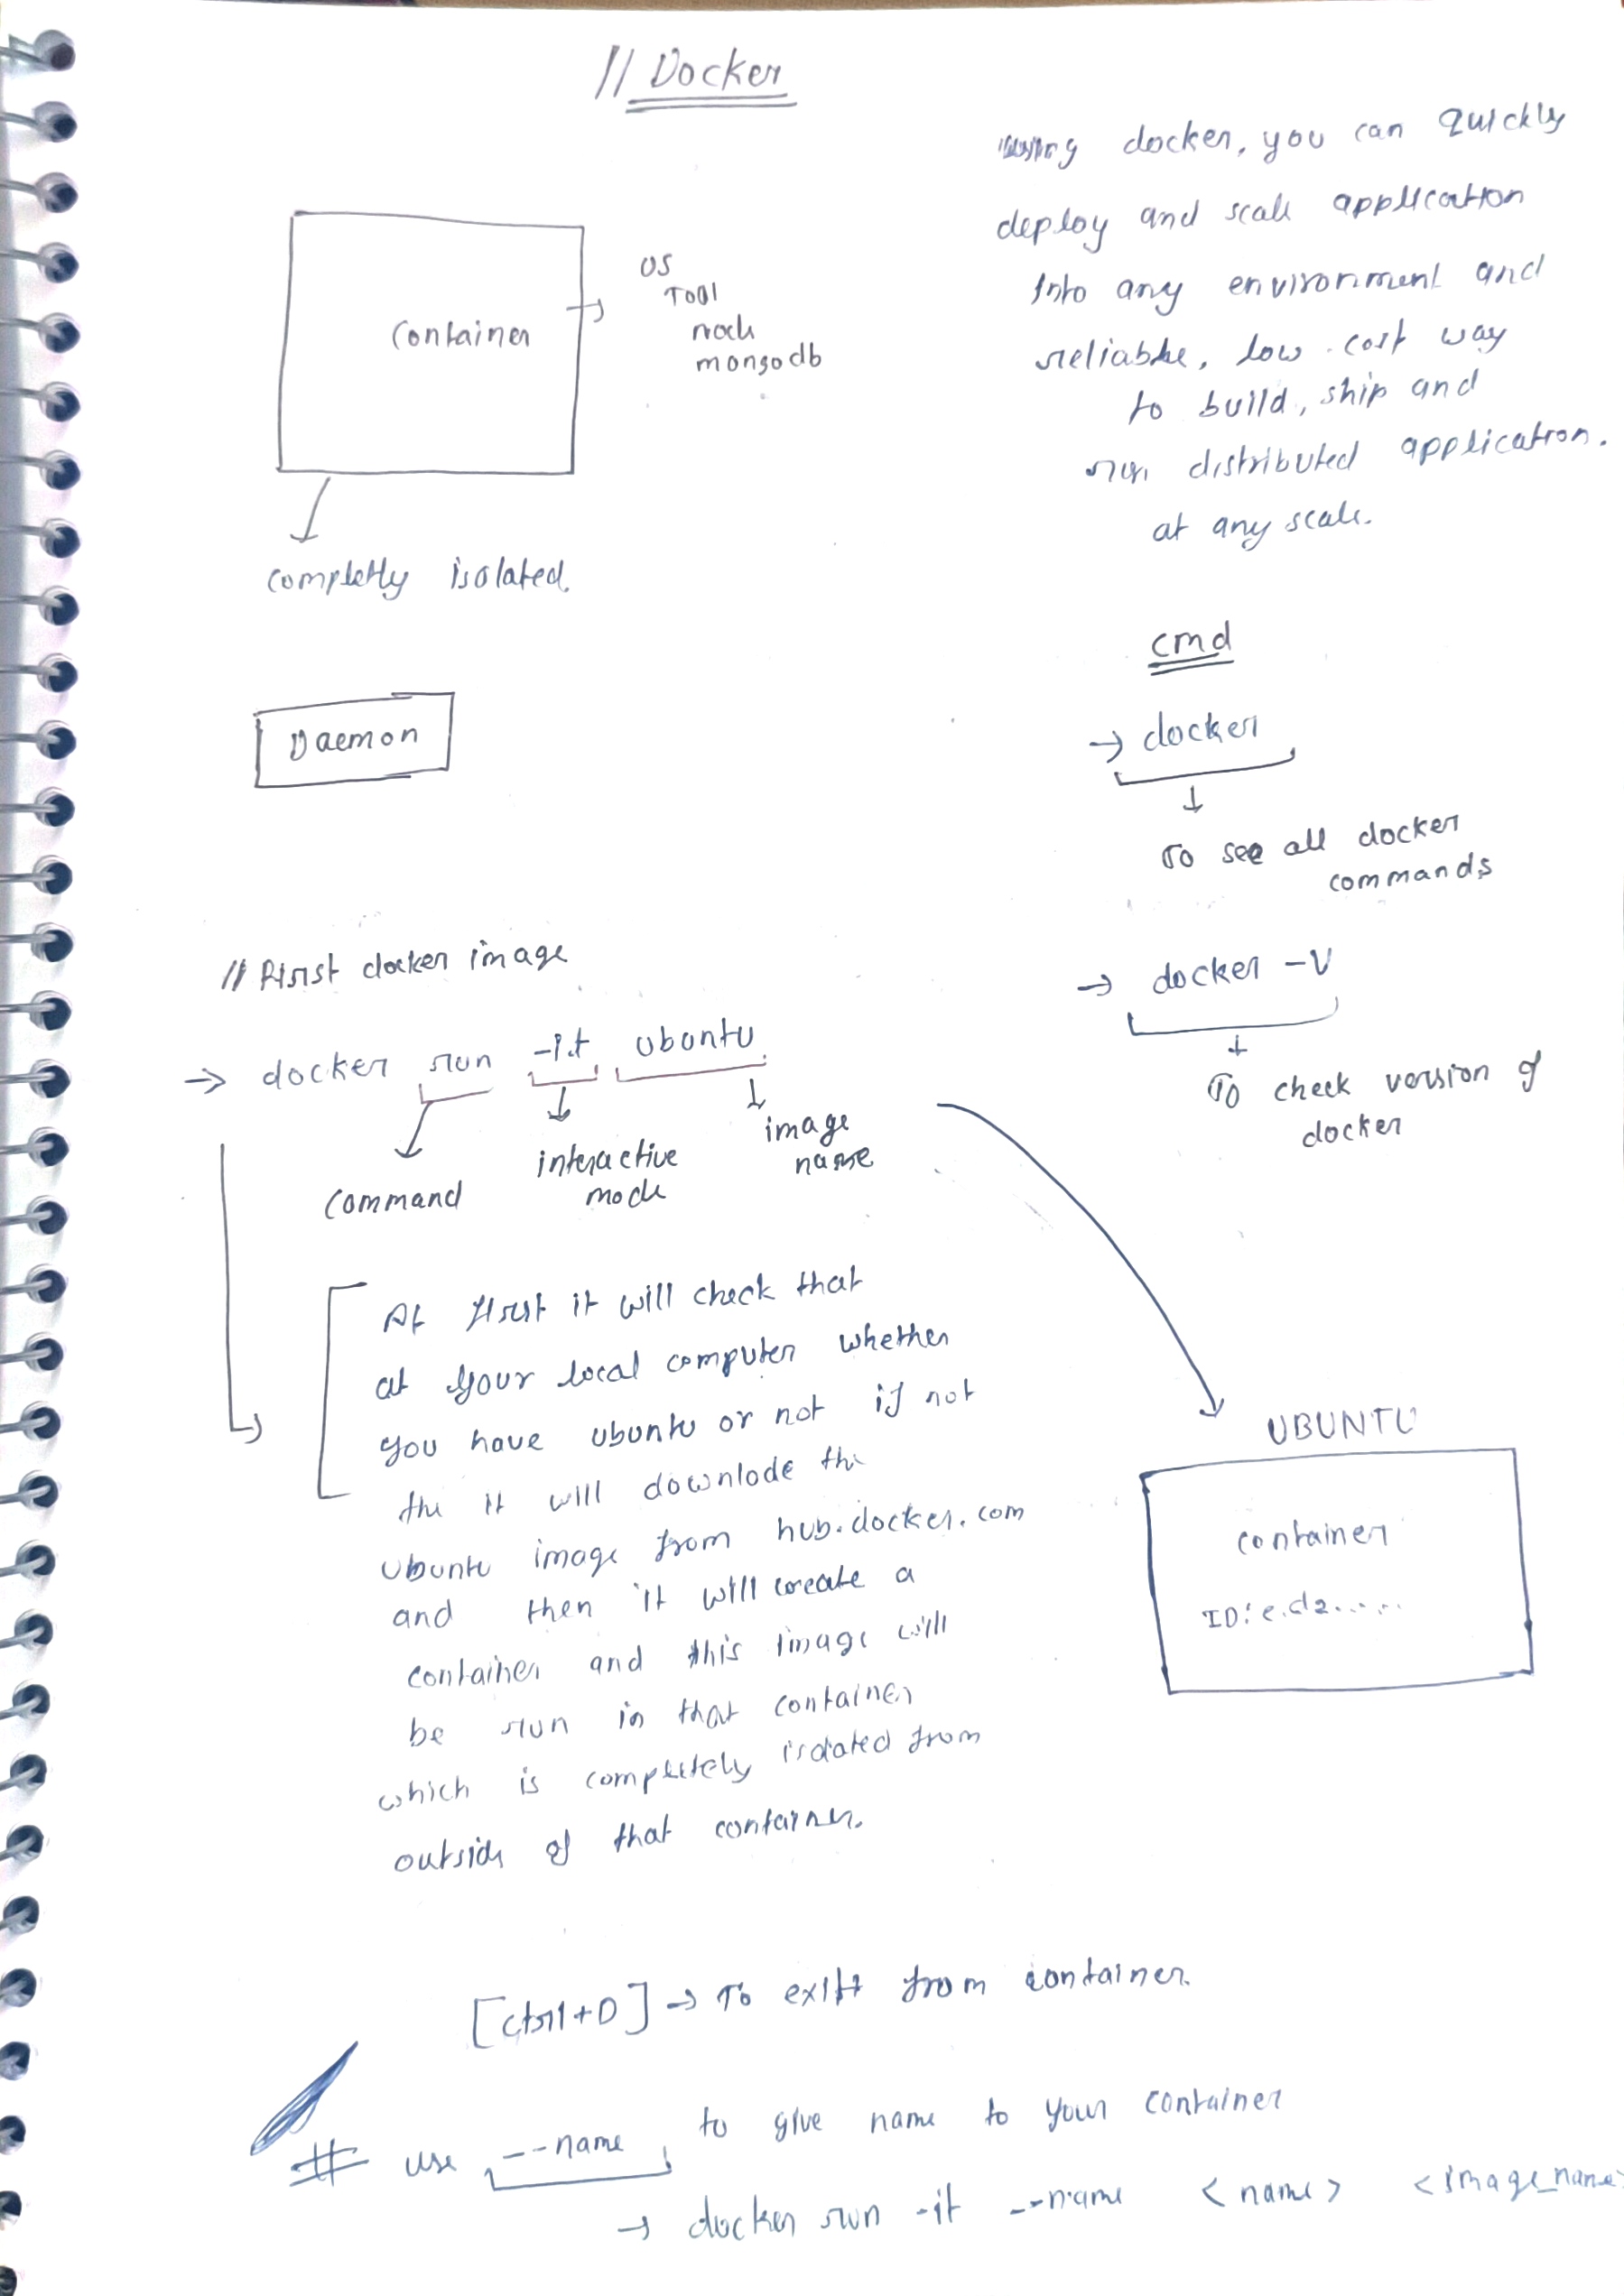 // Docker
using docker, you can quickly
deploy and scale application
Into any environment and
reliable, low-cost way
to build, ship and
run distributed application.
at any scale.
container
OS
Tool
node
mongodb
completly isolated.
Daemon
cmd
→ docker
To see all docker
commands
→ docker -v
To check version of
docker
// First docker image
→ docker run -it ubuntu
command
interactive
mode
image
name
At first it will check that
at your local computer whether
you have ubuntu or not if not
the it will downlode the
ubuntu image from hub.docker.com
and then it will create a
container and this image will
be run in that container
which is completely isolated from
outside of that container.
UBUNTU
container
ID: e.d2......
[ctrl+D] → To exit from container.
# use --name to give name to your container
→ docker run -it --name <name> <image_name>